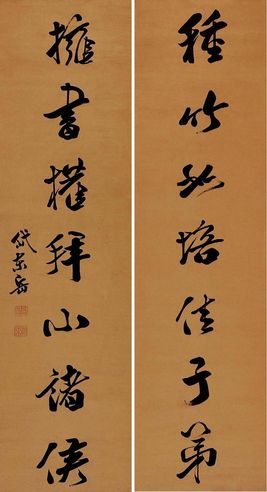 種竹如培佳子弟
擁書權拜小諸侯